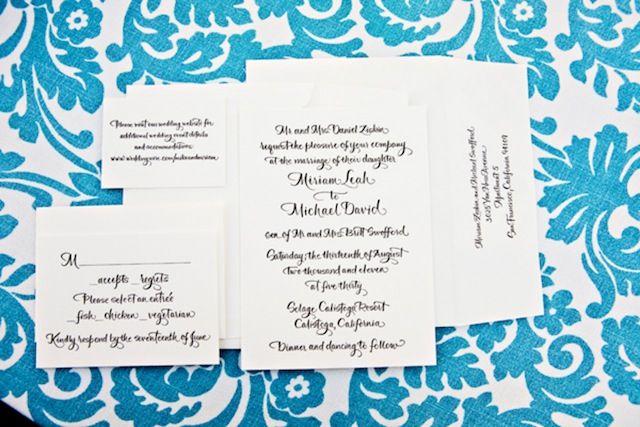 Please visit our wedding website for
additional wedding event details
and accommodations
M
_accepts _regrets
Please select an entrée
_fish _chicken _vegetarian
Kindly respond by the seventeenth of June
Mr and Mrs Daniel Ziskin
request the pleasure of your company
at the marriage of their daughter
Miriam Leah
to
Michael David
son of Mr and Mrs Britt Swofford
Saturday, the thirteenth of August
two thousand and eleven
at five thirty
Solage Calistoga Resort
Calistoga, California
Dinner and dancing to follow
Miriam Ziskin and Michael Swofford
Van Ness Avenue
Apartment 5
San Francisco, California 94109